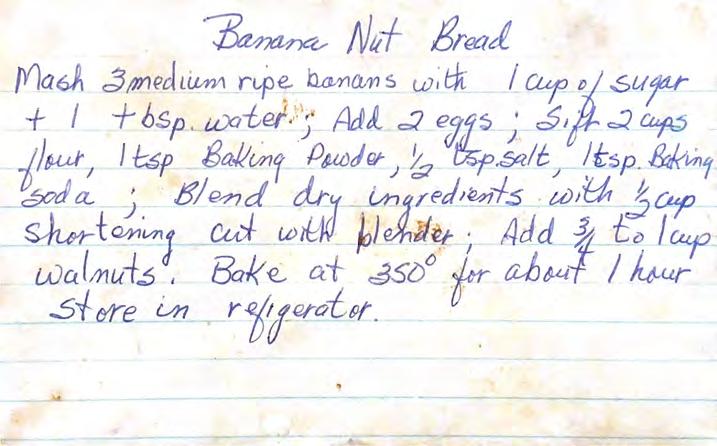 Banana Nut Bread
Mash 3 medium ripe banans with 1 cup of sugar
+ 1 tbsp. water; Add 2 eggs; Sift 2 cups
flour, 1 tsp Baking Powder, ½ tsp. salt, 1 tsp. Baking
soda; Blend dry ingredients with ½ cup
shortening cut with blender; Add ¾ to 1 cup
walnuts. Bake at 350° for about 1 hour
Store in refigerator.